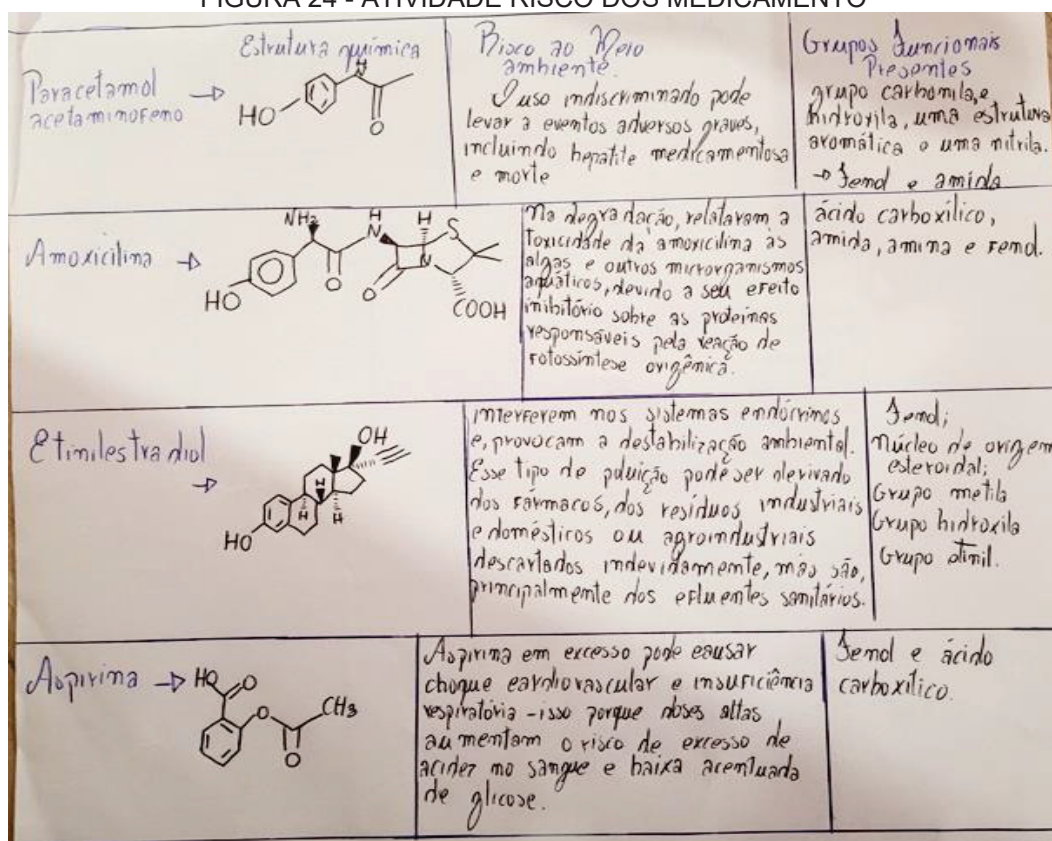 FIGURA 24 - ATIVIDADE RISCO DOS MEDICAMENTO
Estrutura química
Risco ao Meio
ambiente.
Grupos Funcionais
Presentes
Paracetamol
acetaminofeno
H
N
HO
O
O uso indiscriminado pode
levar a eventos adversos graves,
incluindo hepatite medicamentosa
e morte
grupo carbonila, e
hidroxila, uma estrutura
aromática e uma nitrila.
→ Fenol e amida
Amoxicilina
NH₂
H
N
H
S
HO
O
O
N
COOH
Na degradação, relataram a
toxicidade da amoxicilina às
algas e outros microrganismos
aquáticos, devido a seu efeito
inibitório sobre as proteínas
responsáveis pela reação de
fotossíntese oxigênica.
ácido carboxílico,
amida, amina e Fenol.
Etinilestradiol
OH
H
H
H
HO
interferem nos sistemas endócrinos
e, provocam a destabilização ambiental.
Esse tipo de poluição pode ser derivado
dos fármacos, dos resíduos industriais
e domésticos ou agroindustriais
descartados indevidamente, mas são,
principalmente dos efluentes sanitários.
Fenol;
Núcleo de origem
esteroidal;
Grupo metila
Grupo hidroxila
Grupo etinil.
Aspirina
HO
O
O
CH3
O
Aspirina em excesso pode causar
choque cardiovascular e insuficiência
respiratória - isso porque doses altas
aumentam o risco de excesso de
acidez no sangue e baixa acentuada
de glicose.
Fenol e ácido
carboxílico.